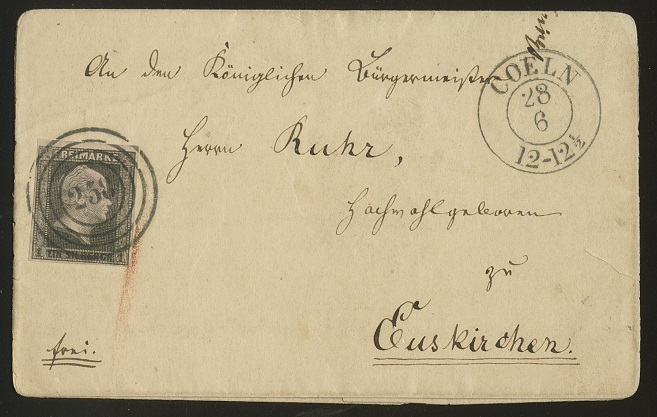 An den Königlichen Bürgermeister
COELN
28
6
12-12½
Herrn Ruhr,
Hochwohlgeboren
zu
Euskirchen.
frei.
FREIMARKE
1 EIN SILBERGR. 1